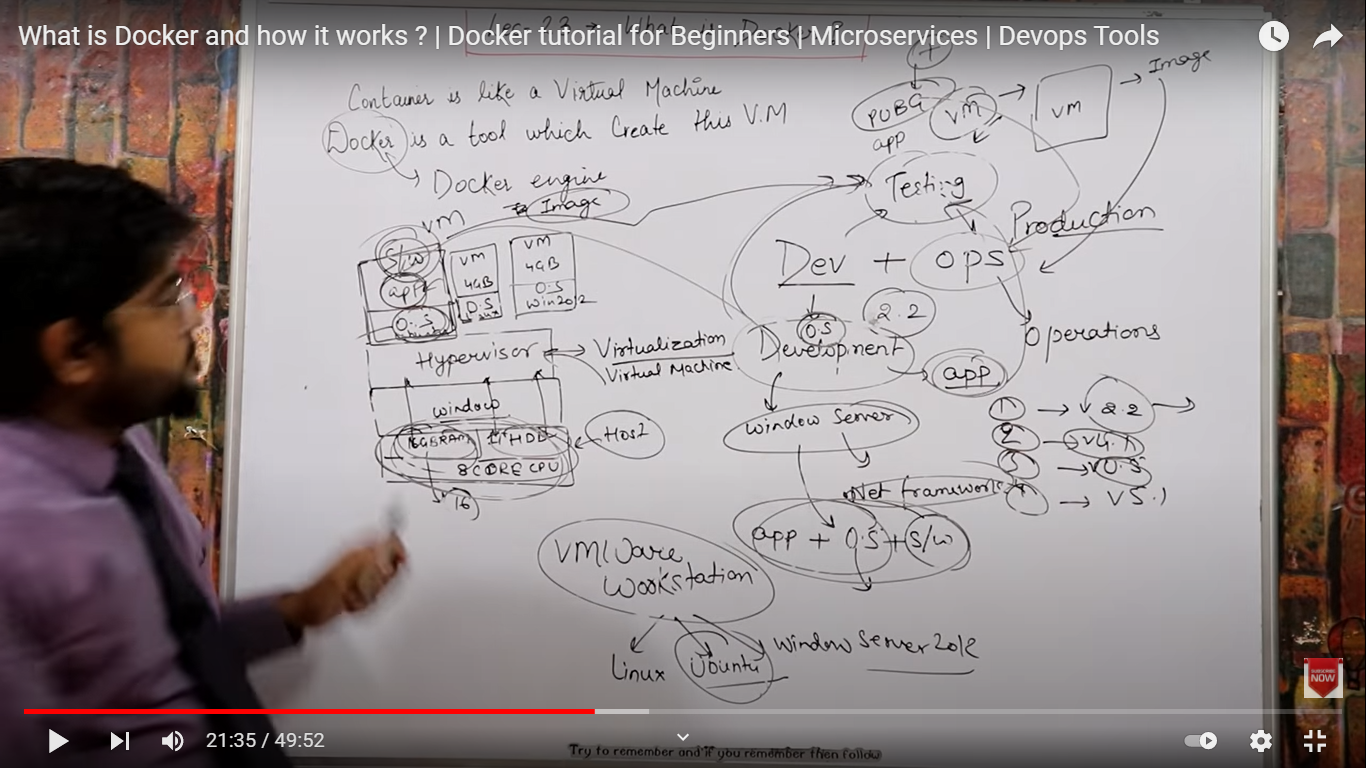 What is Docker and how it works ? | Docker tutorial for Beginners | Microservices | Devops Tools
Container is like a Virtual Machine
Docker is a tool which Create this V.M
Docker engine
Image
VM
S/W
app
O.S
VM
4GB
O.S
VM
4GB
O.S
Win2012
Hypervisor
Virtualization
Virtual Machine
window
HDD
8 CORE CPU
Host
16
PUBG
app
VM
VM
Image
Testing
Production
Dev + OPS
O.S
2.2
Development
Operations
app
Window Server
1 → v 2.2
2 → v4.1
→ VS.1
.Net framework
app + O.S + S/W
VMWare
Workstation
Linux
Ubuntu
Window Server 2012
SUBSCRIBE
NOW
21:35 / 49:52
Try to remember and if you remember then follow